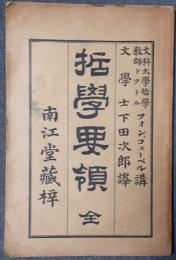 文科大學哲學
教師ドクトル フォン、コェーベル講
文學士 下田次郎譯
哲學要領 全
南江堂藏梓